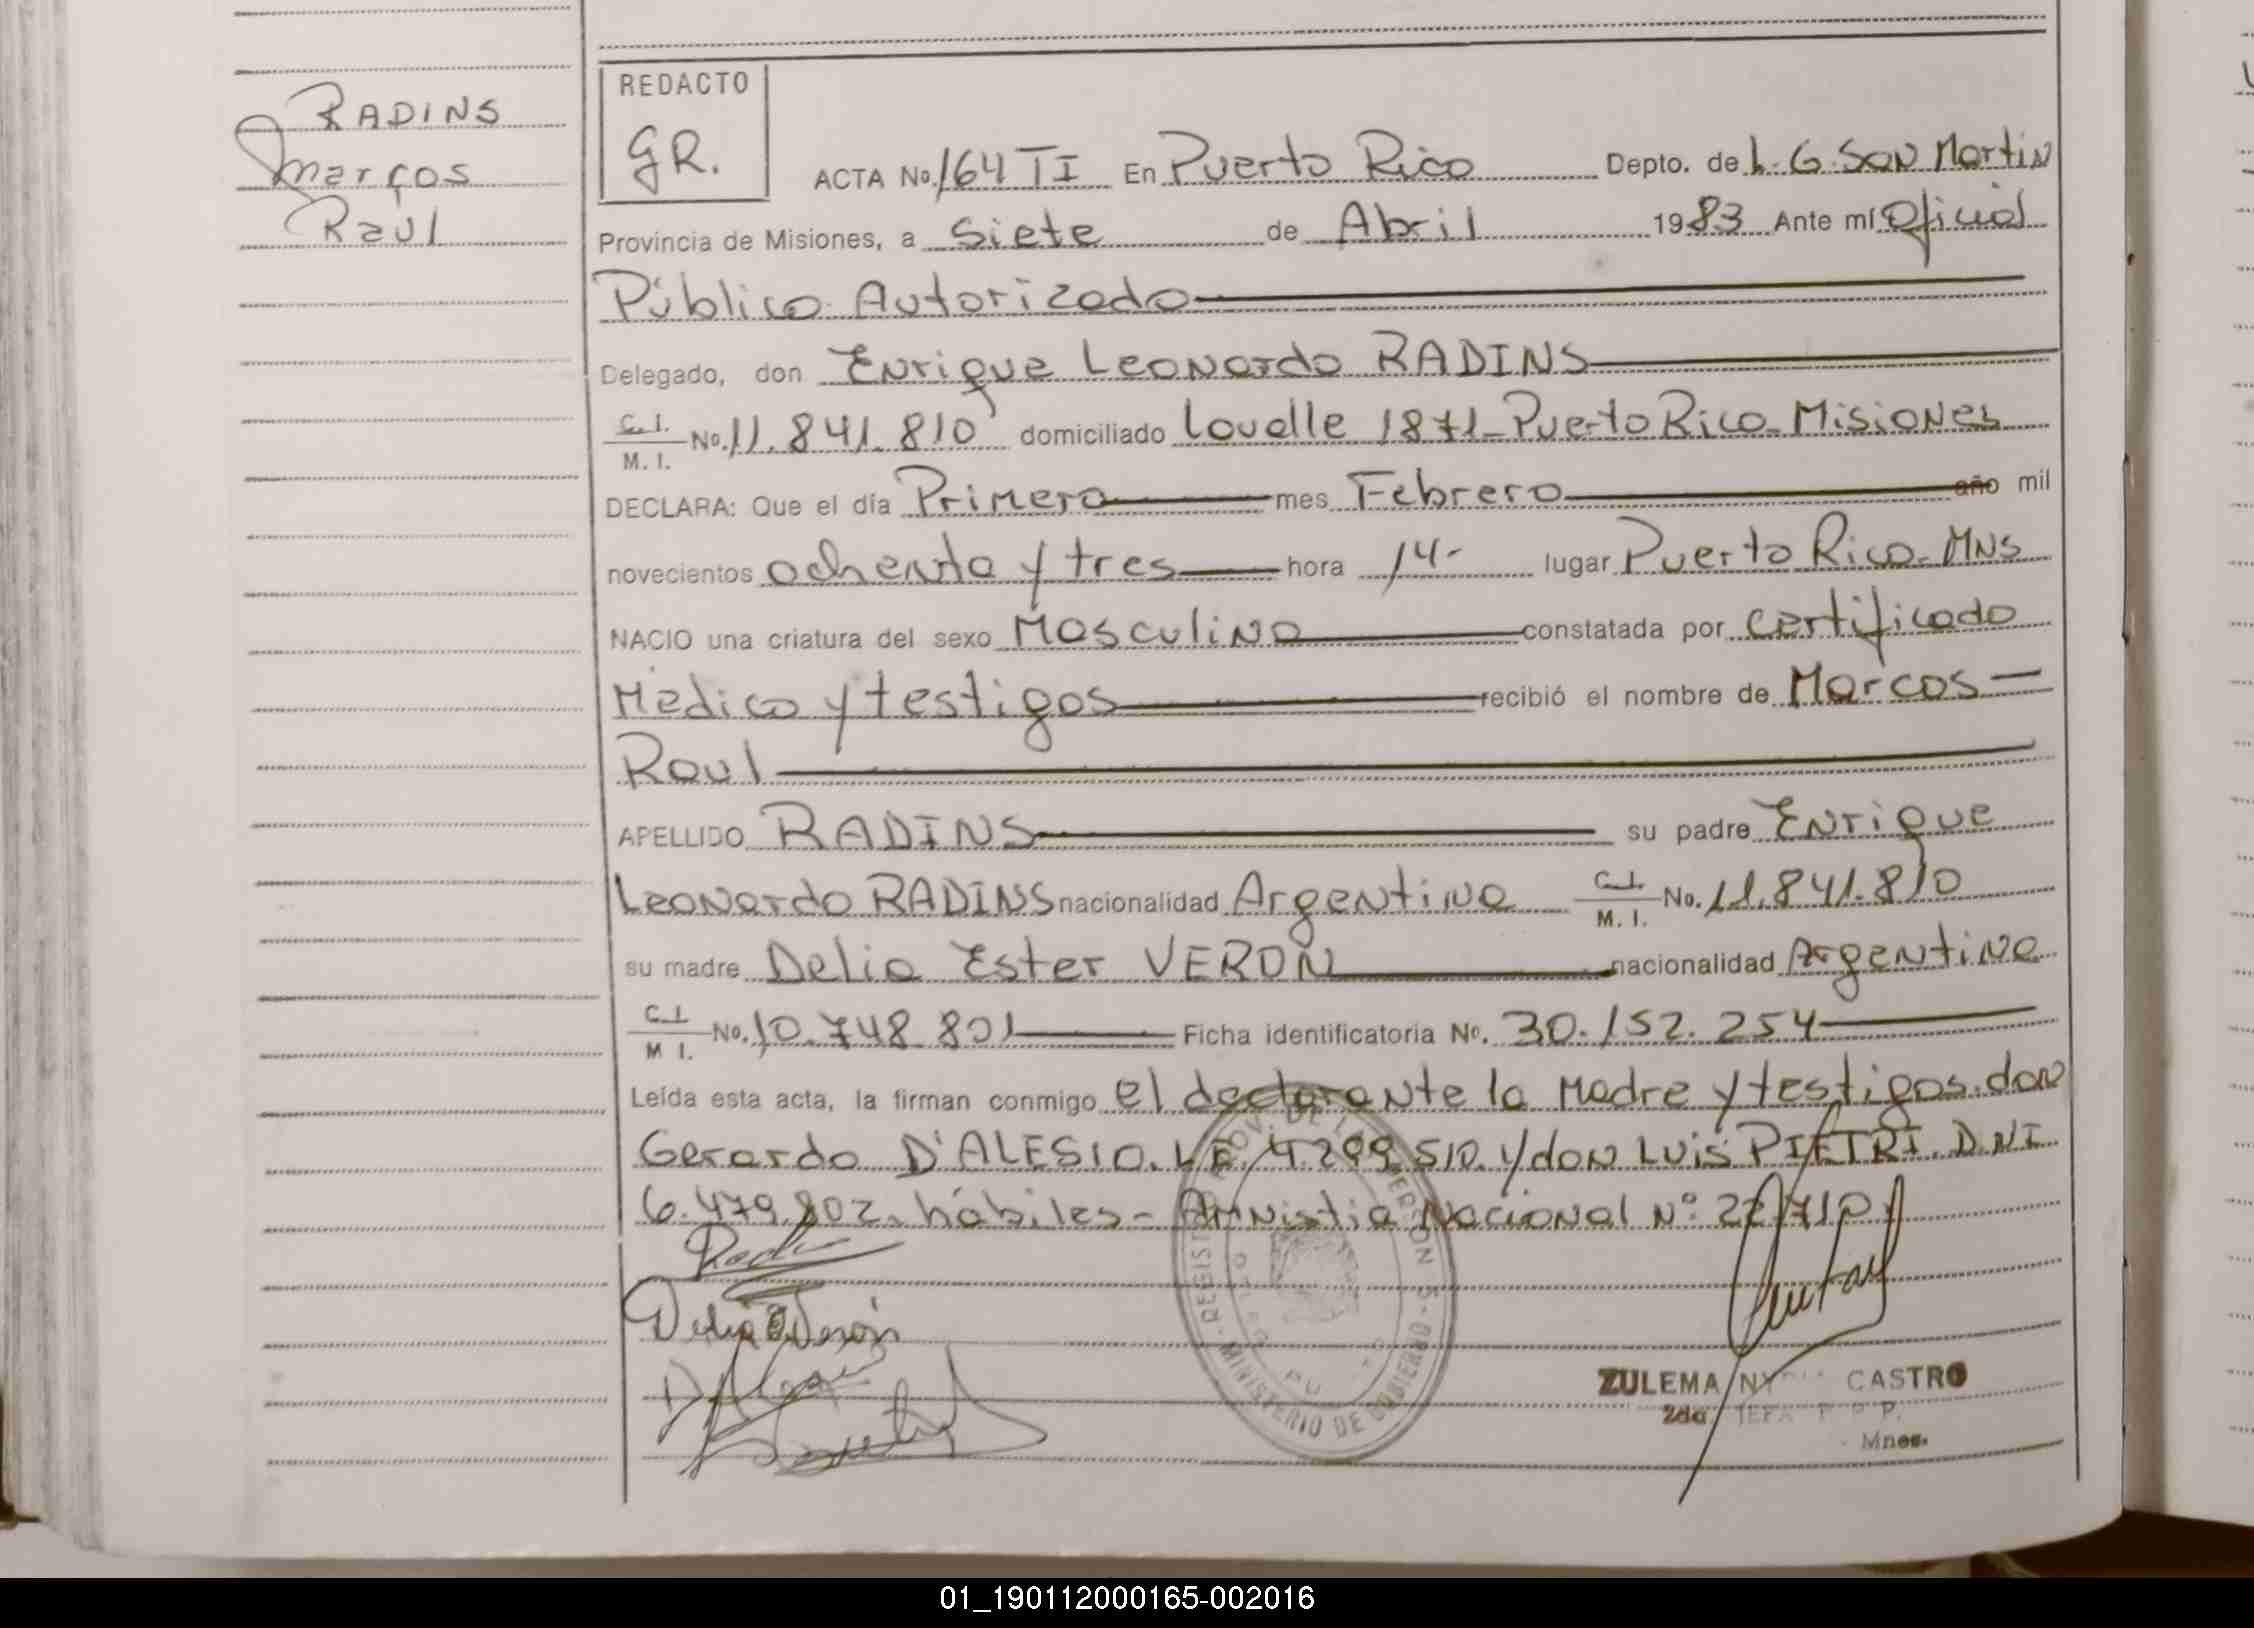 RADINS
Marcos
Raul
REDACTO
GR.
ACTA No. 164 TI En Puerto Rico Depto. de L. G. San Martin
Provincia de Misiones, a Siete de Abril 1983 Ante mí Oficial
Público Autorizado
Delegado, don Enrique Leonardo RADINS
C.I. M.I. No. 11.841.810 domiciliado Lovalle 1871 - Puerto Rico - Misiones
DECLARA: Que el día Primero mes Febrero año mil
novecientos ochenta y tres hora 14- lugar Puerto Rico - Mns
NACIO una criatura del sexo Masculino constatada por certificado
Médico y testigos recibió el nombre de Marcos
Raul
APELLIDO RADINS su padre Enrique
Leonardo RADINS nacionalidad Argentina C.I. M.I. No. 11.841.810
su madre Delia Ester VERON nacionalidad Argentina
C.I. M.I. No. 10.748.801 Ficha identificatoria No. 30.152.254
Leída esta acta, la firman conmigo el declarante la Madre y testigos. don
Gerardo D'ALESIO. L.E. 4.299.510. y don Luis PIETRI. D.N.I.
6.479.802. hábiles - Amnistia Nacional N° 22.710
Delia E Verón
MINISTERIO DE GOBIERNO
ZULEMA CASTRO
2da. JEFA
Mnes.
01_190112000165-002016